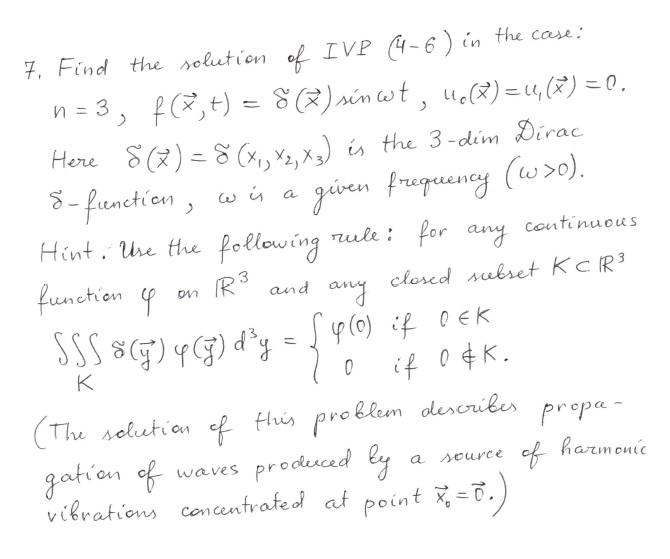 7. Find the solution of IVP (4-6) in the case:
n = 3, f(x⃗,t) = δ(x⃗) sin ωt, u₀(x⃗) = u₁(x⃗) = 0.
Here δ(x⃗) = δ(x₁, x₂, x₃) is the 3-dim Dirac
δ-function, ω is a given frequency (ω>0).
Hint. Use the following rule: for any continuous
function φ on ℝ³ and any closed subset K⊂ℝ³
∭_K δ(y⃗) φ(y⃗) d³y = { φ(0) if 0 ∈ K
0 if 0 ∉ K.
(The solution of this problem describes propa-
gation of waves produced by a source of harmonic
vibrations concentrated at point x⃗₀ = 0⃗.)